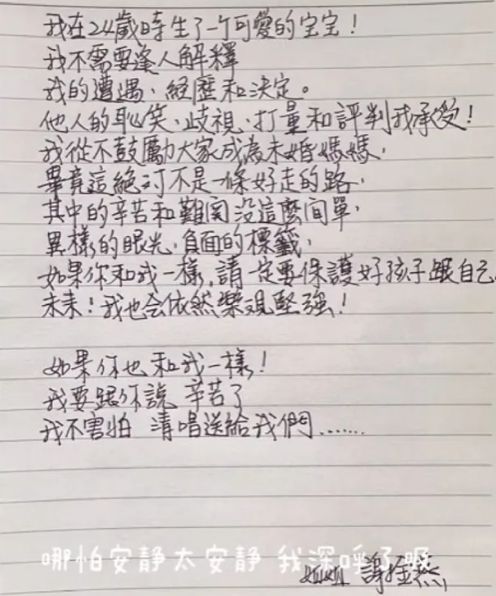 我在24歲時生了一个可愛的宝宝！
我不需要逢人解釋
我的遭遇、経歷和決定。
他人的恥笑、歧視、打量和評判我承受！
我從不鼓勵大家成為未婚媽媽，
畢竟這絕対不是一條好走的路，
其中的辛苦和難関没這麼间單，
異樣的眼光，負面的標籤，
如果你和我一樣，請一定要保護好孩子跟自己
未來！我也会依然樂观堅強！
如果你也和我一樣！
我要跟你說 辛苦了
我不害怕 清唱送給我們……
哪怕安静太安静 我深呼了吸
姐姐 謝金燕